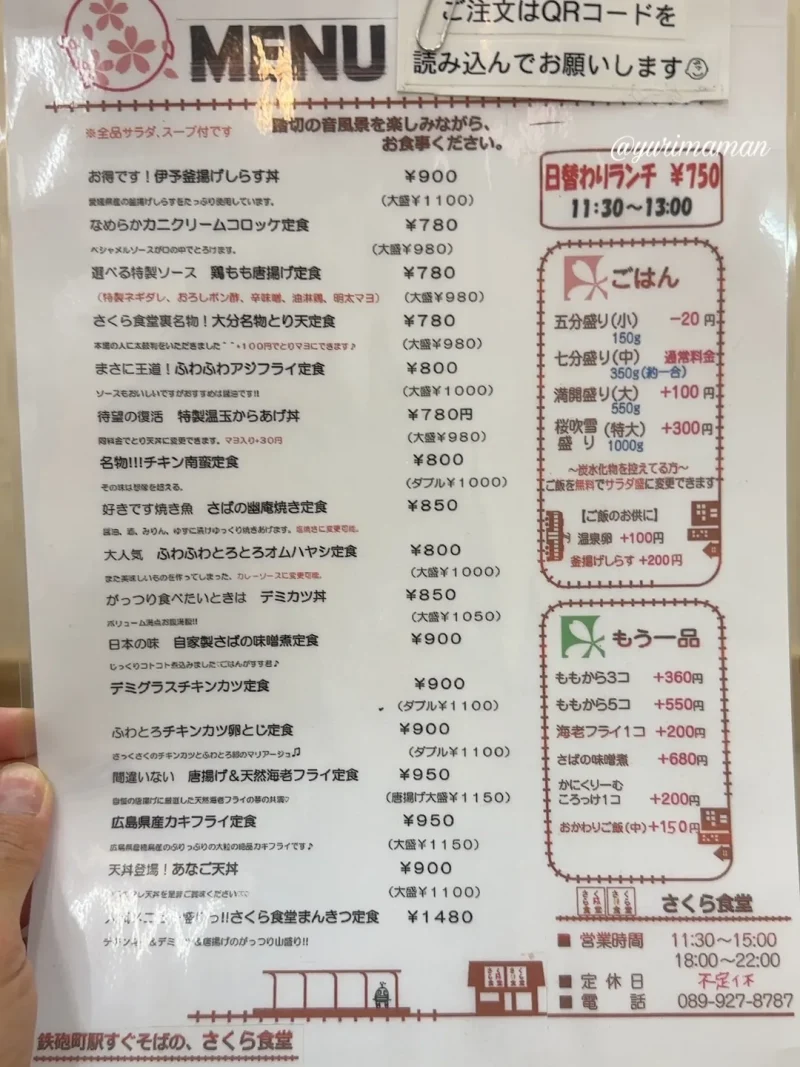 MENU
ご注文はQRコードを
読み込んでお願いします
※全品サラダ、スープ付です
踏切の音風景を楽しみながら、
お食事ください。
@yurimaman
お得です！伊予釜揚げしらす丼 ¥900
愛媛県産の釜揚げしらすをたっぷり使用しています。 (大盛¥1100)
なめらかカニクリームコロッケ定食 ¥780
ベシャメルソースが口の中でとろけます。 (大盛¥980)
選べる特製ソース 鶏もも唐揚げ定食 ¥780
(特製ネギダレ、おろしポン酢、辛味噌、油淋鶏、明太マヨ) (大盛¥980)
さくら食堂裏名物！大分名物とり天定食 ¥780
本場の人に太鼓判をいただきました＾＾+100円でとりマヨにできます♪ (大盛¥980)
まさに王道！ふわふわアジフライ定食 ¥800
ソースもおいしいですがおすすめは醤油です!! (大盛¥1000)
待望の復活 特製温玉からあげ丼 ¥780円
同料金でとり天丼に変更できます。マヨ入り+30円 (大盛¥980)
名物!!!チキン南蛮定食 ¥800
その味は想像を超える。 (ダブル¥1000)
好きです焼き魚 さばの幽庵焼き定食 ¥850
醤油、酒、みりん、ゆずに漬けゆっくり焼きあげます。塩焼きに変更可能。
大人気 ふわふわとろとろオムハヤシ定食 ¥800
また美味しいものを作ってしまった。カレーソースに変更可能。 (大盛¥1000)
がっつり食べたいときは デミカツ丼 ¥850
ボリューム満点お腹満腹!! (大盛¥1050)
日本の味 自家製さばの味噌煮定食 ¥900
じっくりコトコト煮込みました♡ごはんがすす君♪
デミグラスチキンカツ定食 ¥900
(ダブル¥1100)
ふわとろチキンカツ卵とじ定食 ¥900
さっくさくのチキンカツとふわとろ卵のマリアージュ♫ (ダブル¥1100)
間違いない 唐揚げ＆天然海老フライ定食 ¥950
自慢の唐揚げに厳選した天然海老フライの夢の共演♡ (唐揚げ大盛¥1150)
広島県産カキフライ定食 ¥950
のぷりっぷりの大粒の絶品カキフライです♪ (大盛¥1150)
天丼登場！あなご天丼 ¥900
(大盛¥1100)
っ!!さくら食堂まんきつ定食 ¥1480
＆唐揚げのがっつり山盛り!!
日替わりランチ ¥750
11:30〜13:00
ごはん
五分盛り(小) −20円
150g
七分盛り(中) 通常料金
350g(約一合)
満開盛り(大) +100円
550g
桜吹雪盛り (特大) +300円
1000g
〜炭水化物を控えてる方〜
ご飯を無料でサラダ盛に変更できます
【ご飯のお供に】
温泉卵 +100円
釜揚げしらす +200円
もう一品
ももから3コ +360円
ももから5コ +550円
海老フライ1コ +200円
さばの味噌煮 +680円
かにくりーむ
ころっけ1コ +200円
おかわりご飯(中)+150円
さくら食堂
■ 営業時間 11:30〜15:00
18:00〜22:00
■ 定休日 不定休
■ 電話 089-927-8787
鉄砲町駅すぐそばの、さくら食堂